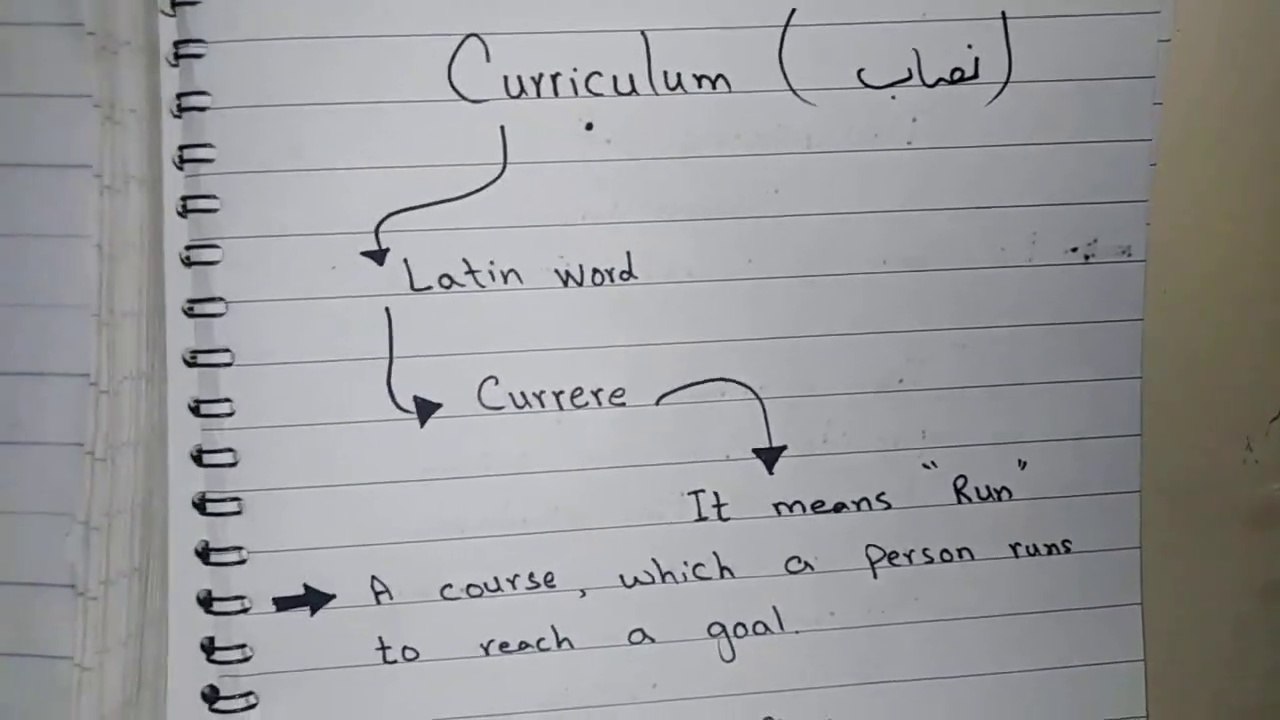 Curriculum (نصاب)
Latin word
Currere
It means "Run"
A course, which a person runs
to reach a goal.